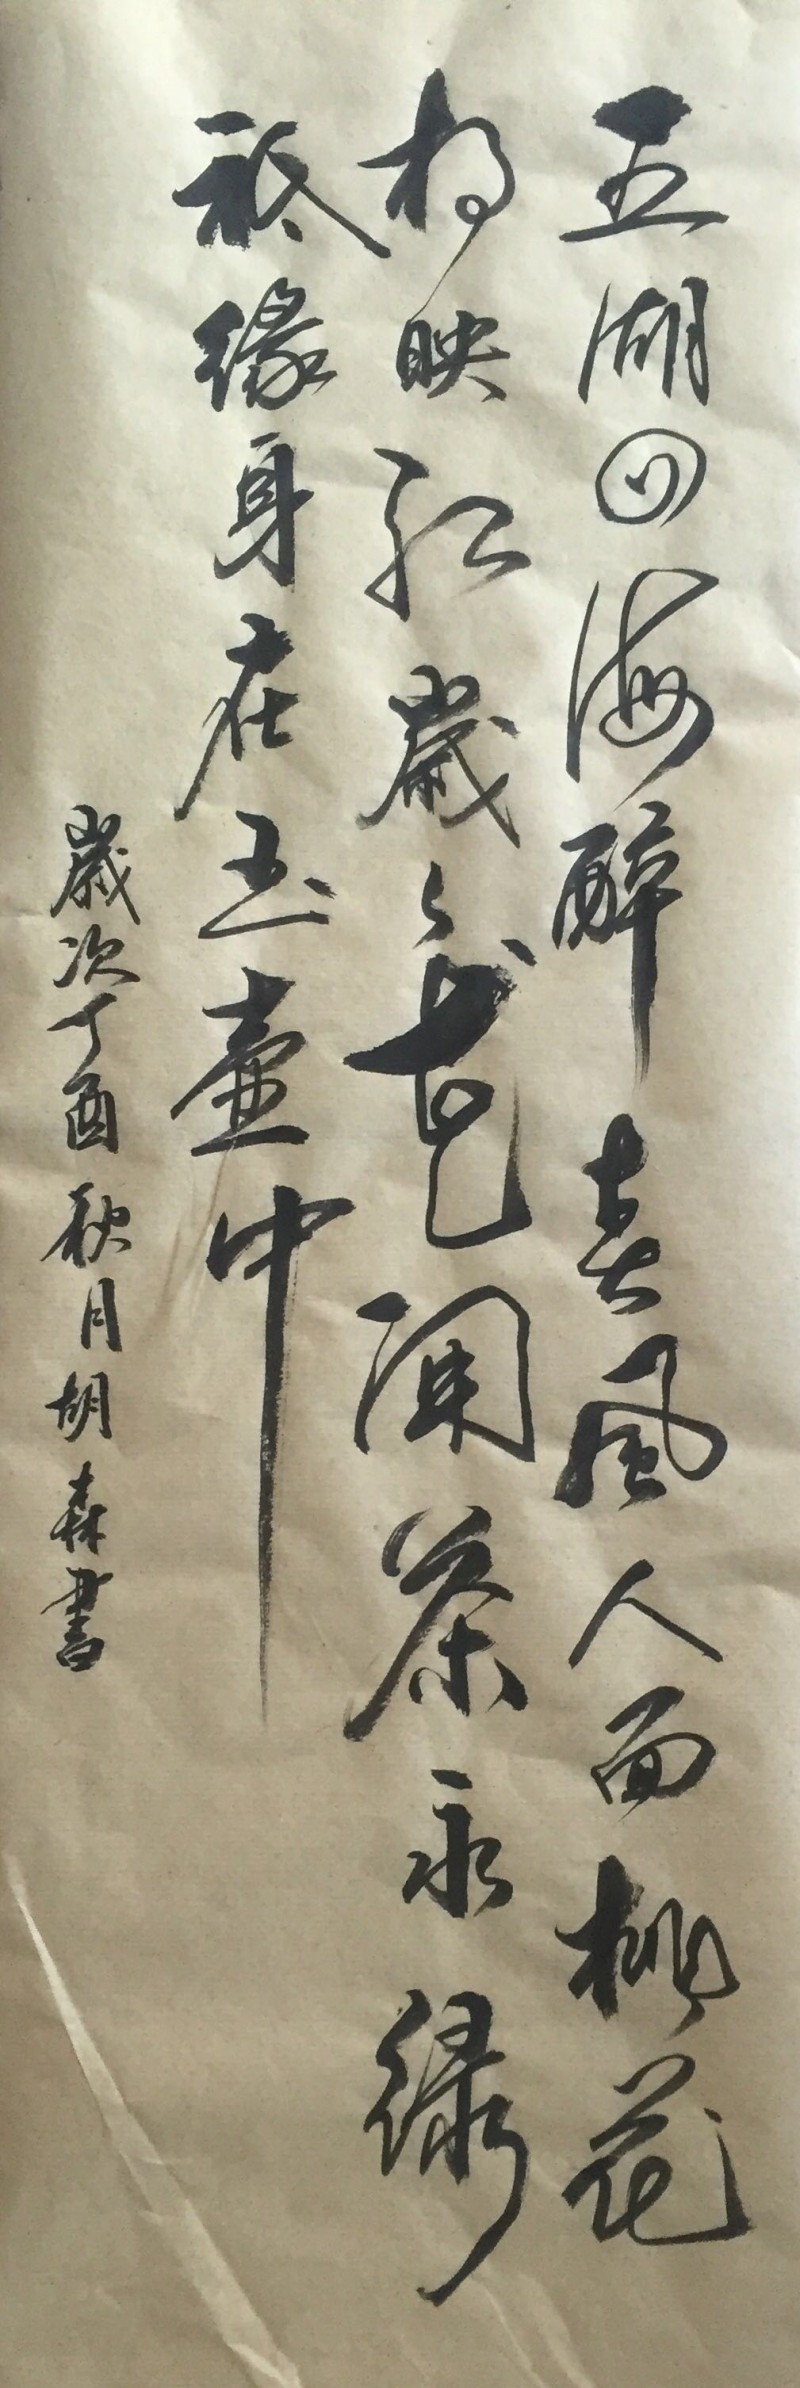 五湖四海醉春風人面桃花
相映紅歲歲花開茶永綠
祗緣身在玉壺中
歲次丁酉秋月胡森書